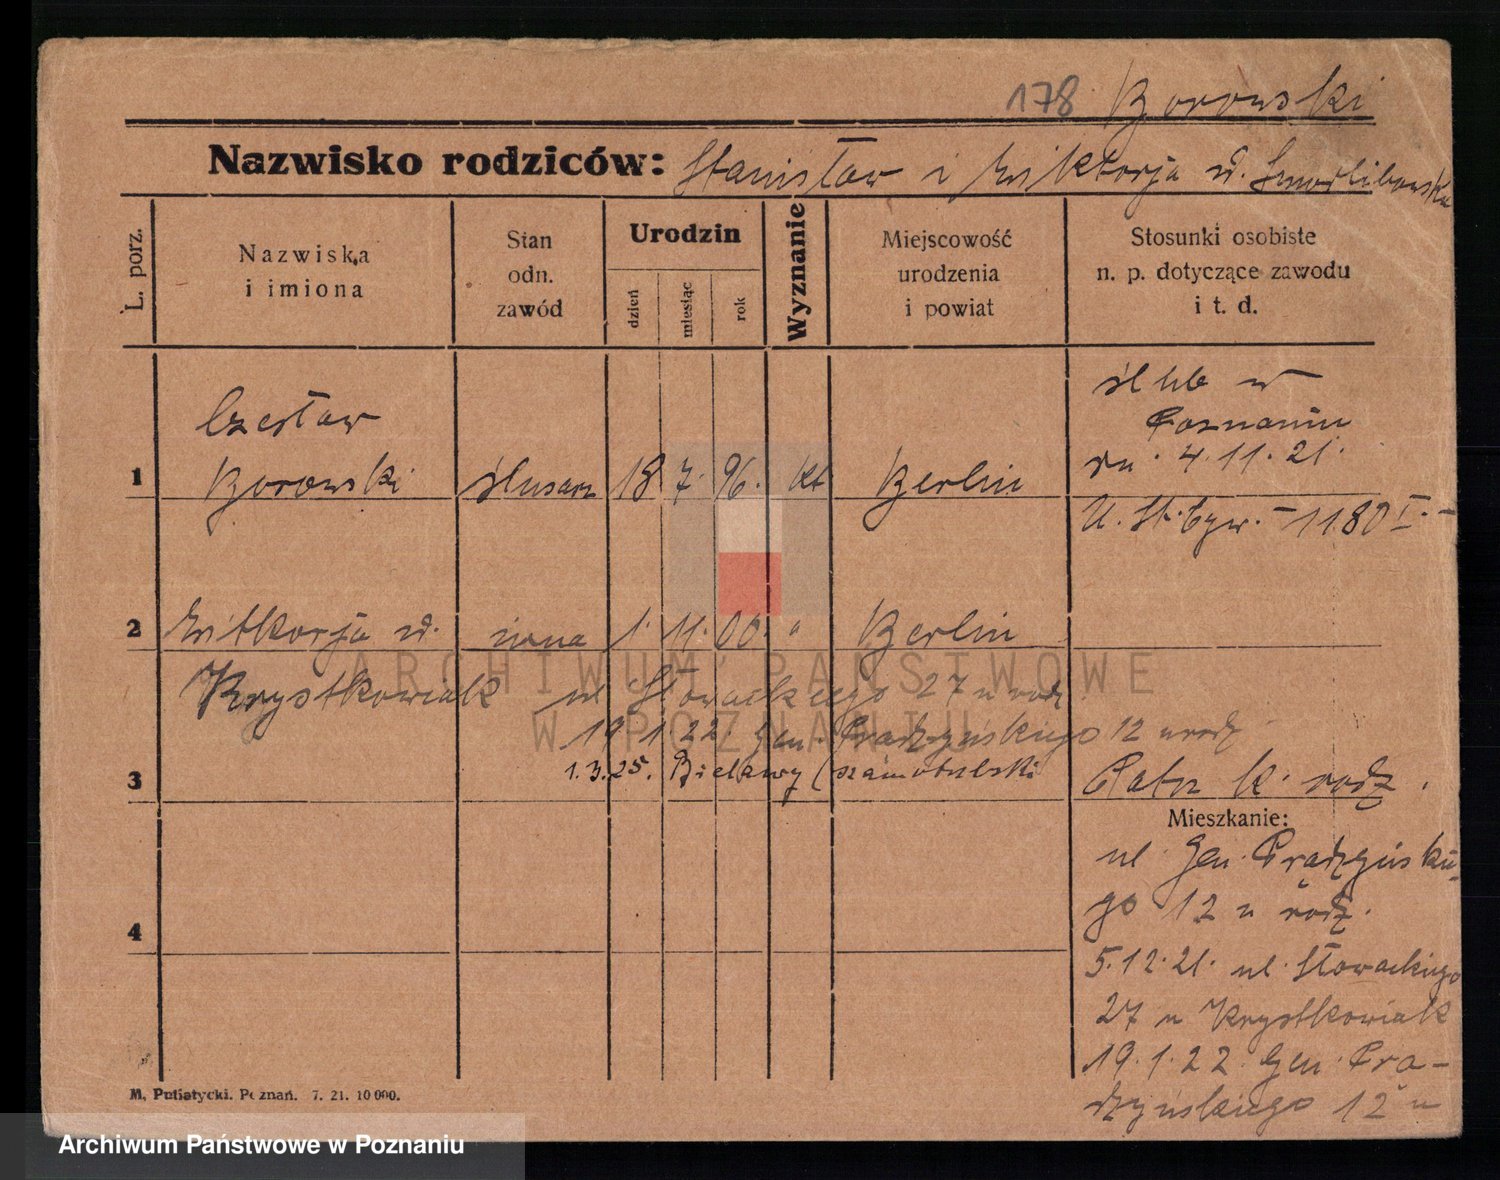 178 Borowski
Nazwisko rodziców: Stanisław i Wiktorja z d. Smodlibowska
L. porz.
Nazwiska
i imiona
Stan
odn.
zawód
Urodzin
dzień
miesiąc
rok
Wyznanie
Miejscowość
urodzenia
i powiat
Stosunki osobiste
n. p. dotyczące zawodu
i t. d.
ślub w
Poznaniu
dn. 4.11.21.
Czesław
1 Borowski ślusarz 18 7. 96. kt Berlin
U. St. Cyw. - 1180 I. -
2 Witkorja z d. żona 1. 11. 00. " Berlin
Krystkowiak ul Słowackiego 27 u rodz
19 1. 22. Gen. Prądzyńskiego 12 u rodz
1.3.25. Bielawy (szamotulski
3 Patrz k. rodz.
Mieszkanie:
ul. Gen. Prądzyńskie-
go 12 u rodz.
4
5.12.21. ul. Słowackiego
27 u Krystkowiak
19.1.22. Gen. Prą-
dzyńskiego 12 u
M. Putiatycki. Poznań. 7. 21. 10 000.
ARCHIWUM PAŃSTWOWE
W POZNANIU
Archiwum Państwowe w Poznaniu